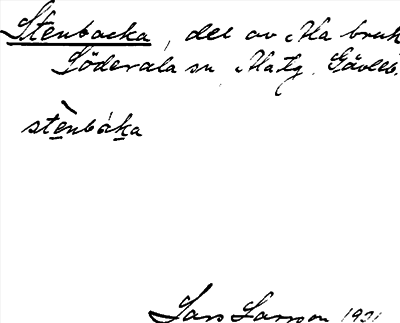 Stenbacka, del av Ala bruk
Söderala sn, Alatg. Gävleb.
stenbàka
Lars Larsson 1931